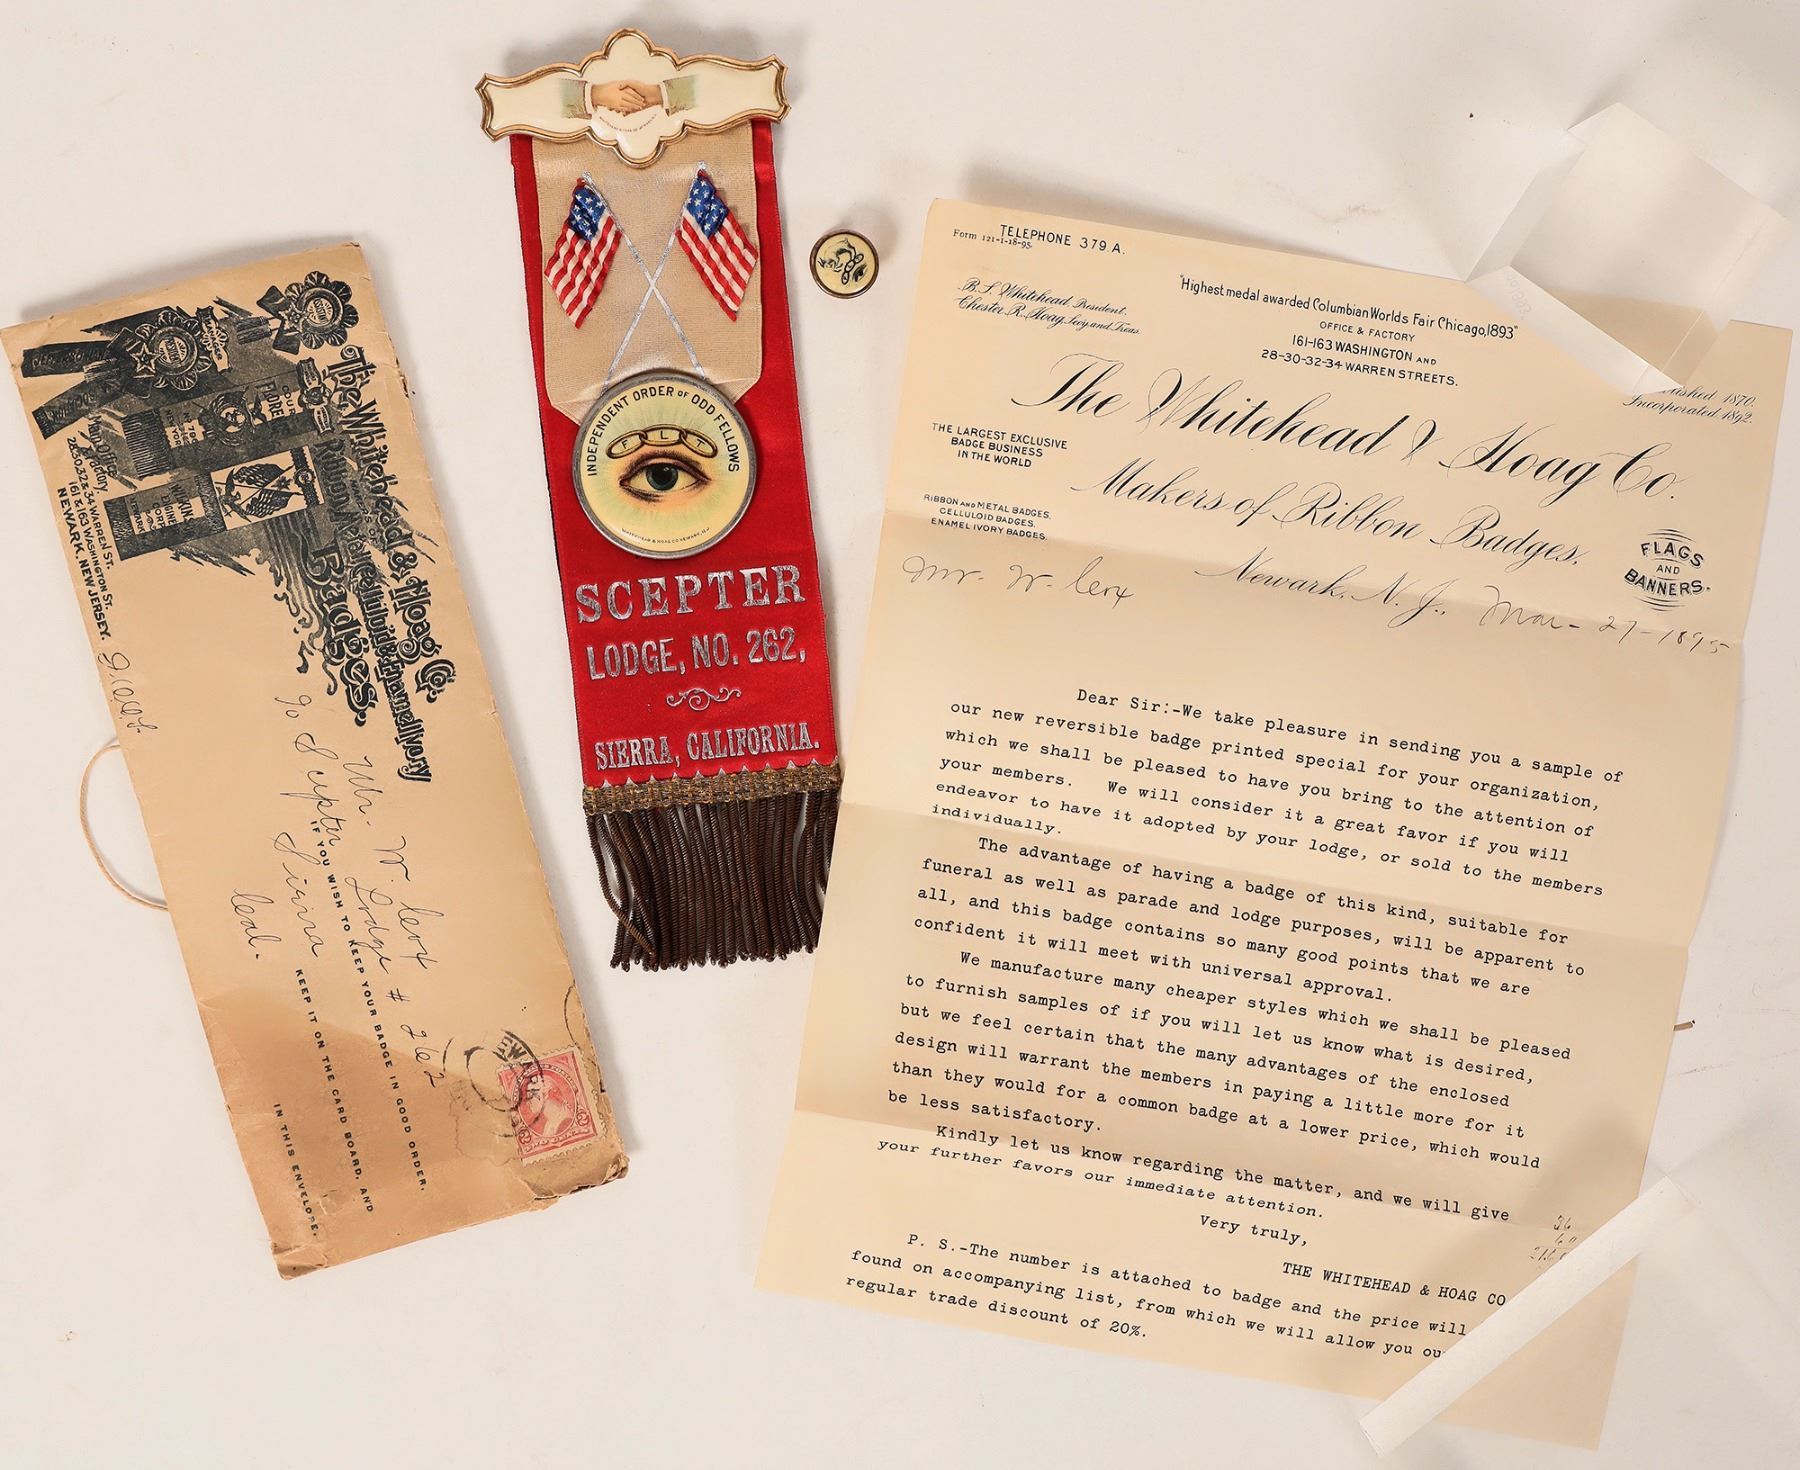 The Whitehead & Hoag Co.
MAKERS OF
Ribbon, Metal, Celluloid & Enamel Ivory
Badges.
Main Office
& Factory.
28,30,32 & 34 WARREN ST.
161 & 163 WASHINGTON ST.
NEWARK, NEW JERSEY.
I.O.O.F.
Mr. W.
℅ Scepter Lodge # 262
Sierra
Cal.
IF YOU WISH TO KEEP YOUR BADGE IN GOOD ORDER,
KEEP IT ON THE CARD BOARD, AND
IN THIS ENVELOPE.
NEWARK
INDEPENDENT ORDER OF ODD FELLOWS
F L T
WHITEHEAD & HOAG CO. NEWARK, N.J.
SCEPTER
LODGE, NO. 262,
SIERRA, CALIFORNIA.
TELEPHONE 379 A.
Form 121-1-18-95
B. S. Whitehead, President.
Chester R. Hoag, Secy and Treas.
"Highest medal awarded Columbian Worlds Fair Chicago, 1893"
OFFICE & FACTORY
161-163 WASHINGTON AND
28-30-32-34 WARREN STREETS.
1870.
Incorporated 1892.
The Whitehead & Hoag Co.
THE LARGEST EXCLUSIVE
BADGE BUSINESS
IN THE WORLD
Makers of Ribbon Badges,
RIBBON AND METAL BADGES,
CELLULOID BADGES,
ENAMEL IVORY BADGES.
FLAGS
AND
BANNERS.
Mr. W.
Newark, N. J., Mar- 27-1895
Dear Sir:-We take pleasure in sending you a sample of
our new reversible badge printed special for your organization,
which we shall be pleased to have you bring to the attention of
your members. We will consider it a great favor if you will
endeavor to have it adopted by your lodge, or sold to the members
individually.
The advantage of having a badge of this kind, suitable for
funeral as well as parade and lodge purposes, will be apparent to
all, and this badge contains so many good points that we are
confident it will meet with universal approval.
We manufacture many cheaper styles which we shall be pleased
to furnish samples of if you will let us know what is desired,
but we feel certain that the many advantages of the enclosed
design will warrant the members in paying a little more for it
than they would for a common badge at a lower price, which would
be less satisfactory.
Kindly let us know regarding the matter, and we will give
your further favors our immediate attention.
Very truly,
THE WHITEHEAD & HOAG CO
P. S.-The number is attached to badge and the price will
found on accompanying list, from which we will allow you
regular trade discount of 20%.